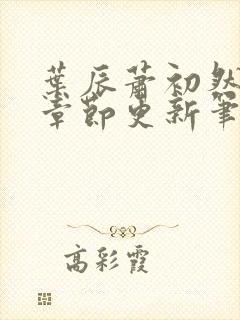 葉辰蕭初然
章節更新筆
高彩霞